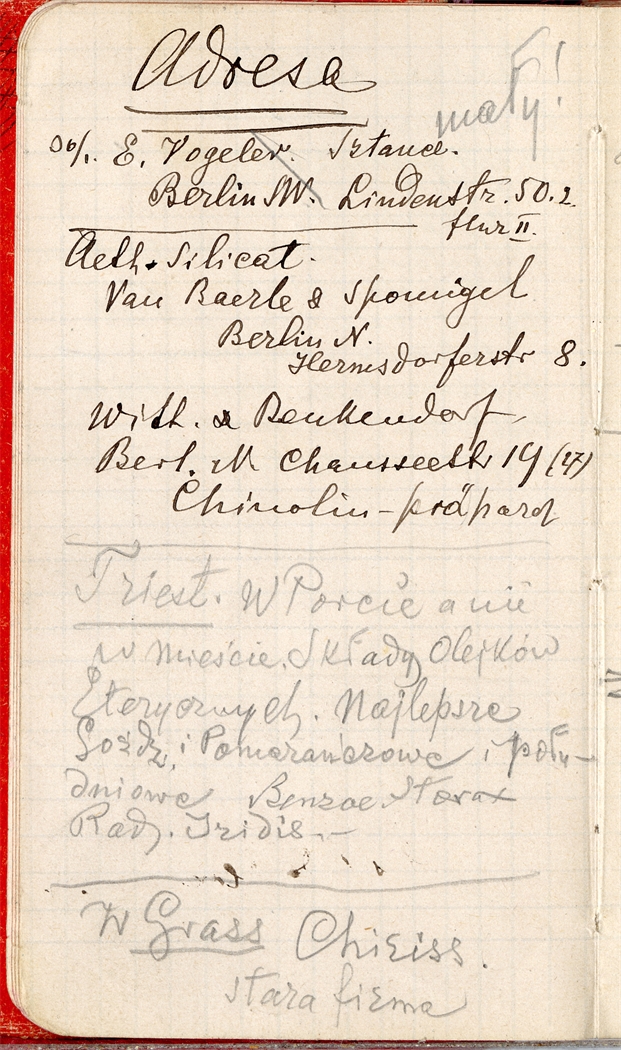 Adresa
mały!
06/1. E. Vogeler. Sztance.
Berlin SW. Lindenstr. 50.2.
flur II.
Aeth. Silicat.
Van Baerle & Sponnigel
Berlin N.
Hermsdorferstr 8.
With. & Benkendorf
Berl. N Chausseestr 19 (27)
Chinolin-präparat
Triest. W Porcie a nie
w mieście. Składy Olejków
Eterycznych. Najlepsze
Goźdz. i Pomarańczowe i połu-
dniowe Benzoe Storax
Rad. Iridis.-
W Grass Chieiss.
stara firma